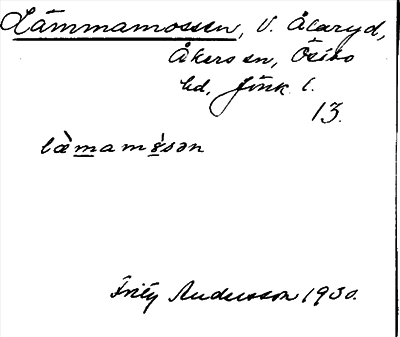 Lämmamossen, V. Åkaryd,
Åkers sn, Östbo
hd, Jönk. l.
13.
læ̀mamɤ́sən
Fritz Andersson 1930.